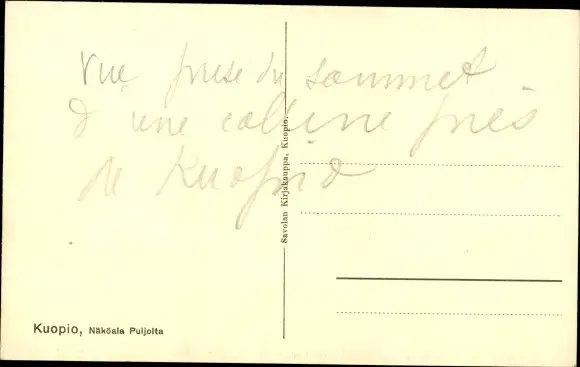 Vue prise du sommet
d'une colline près
de Kuopio
Savolan Kirjakauppa, Kuopio.
Kuopio, Näköala Puijolta